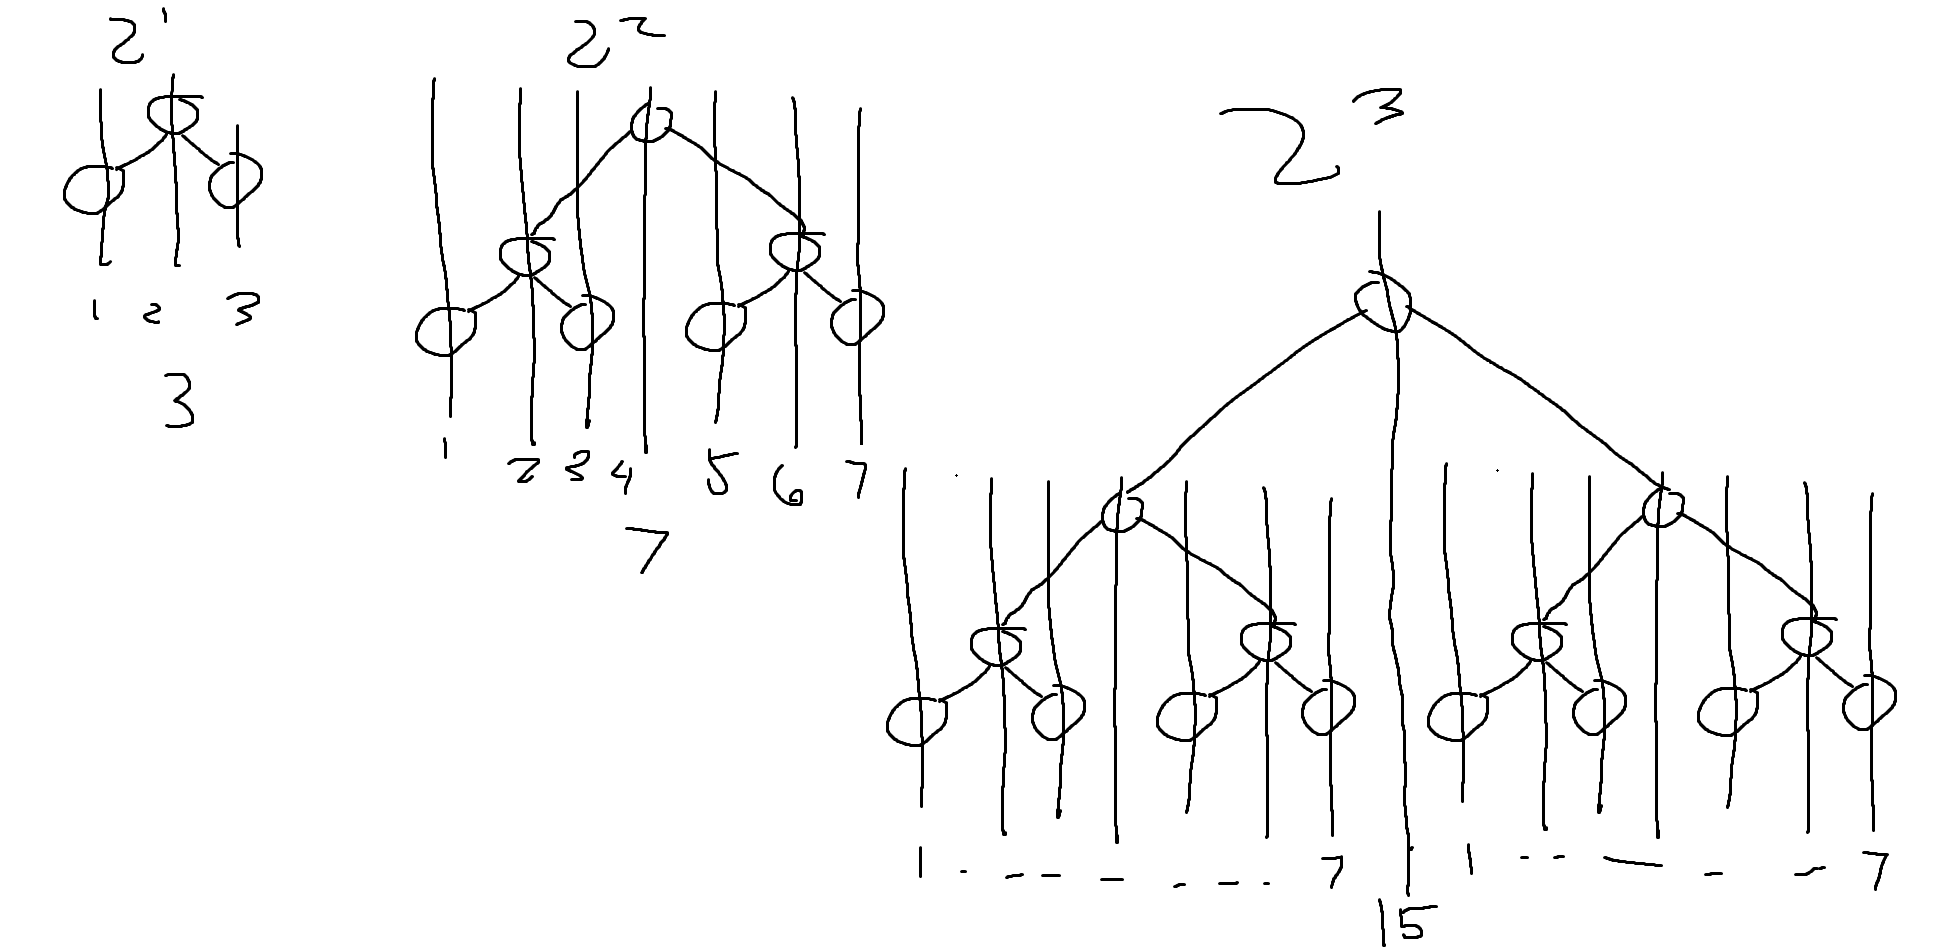 2¹
1 2 3
3
2²
1 2 3 4 5 6 7
7
2³
1 - - - - - - - 7 1 - - — - - 7
15